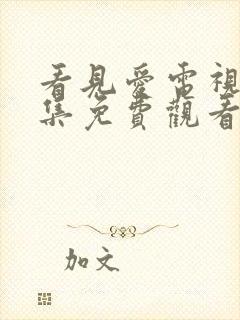 看見愛電視
集免費觀看
加文